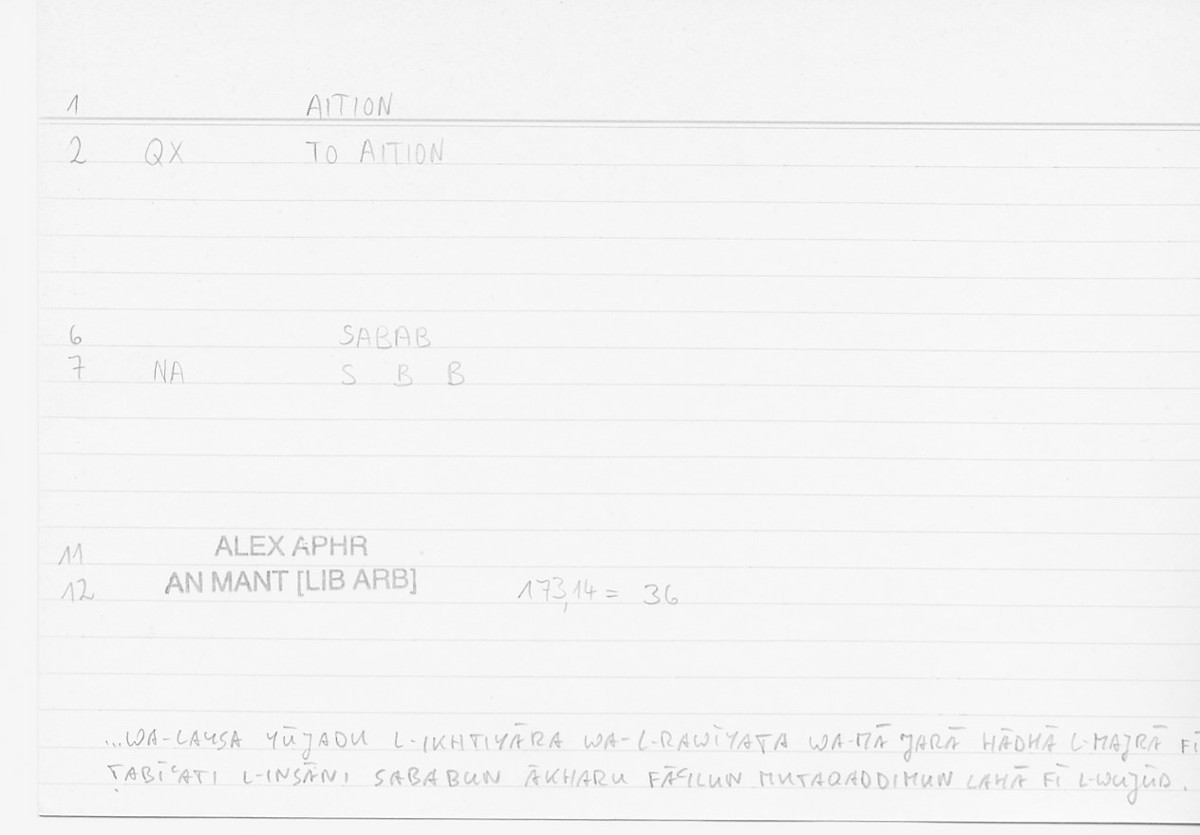 1 AITION
2 QX TO AITION
6 SABAB
7 NA S B B
11 ALEX APHR
12 AN MANT [LIB ARB] 173,14 = 36
...WA-LAYSA YŪJADU L-IKHTIYĀRA WA-L-RAWĪYATA WA-MĀ JARĀ HĀDHĀ L-MAJRĀ FĪ
ṬABĪʿATI L-INSĀNI SABABUN ĀKHARU FĀʿILUN MUTAQADDIMUN LAHĀ FĪ L-WUJŪD.